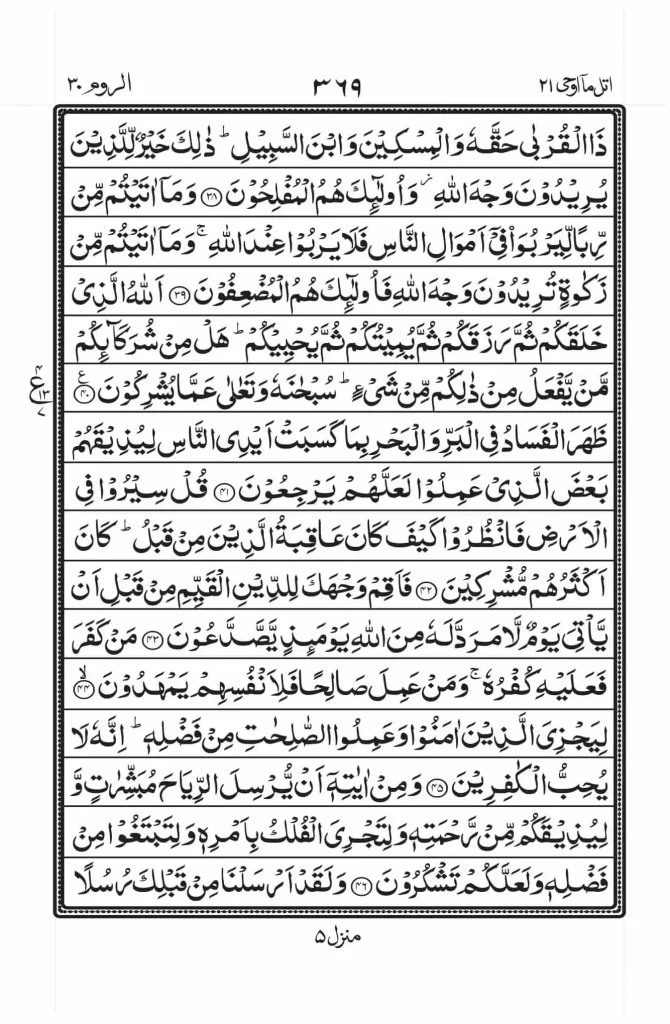 اتل مآ اوحی ۲۱ ۳۶۹ الروم ۳۰
ذَا الْقُرْبٰى حَقَّهٗ وَالْمِسْكِيْنَ وَابْنَ السَّبِيْلِ ؕ ذٰلِكَ خَيْرٌ لِّلَّذِيْنَ
يُرِيْدُوْنَ وَجْهَ اللّٰهِ ؗ وَاُولٰٓئِكَ هُمُ الْمُفْلِحُوْنَ ﴿۳۸﴾ وَمَاۤ اٰتَيْتُمْ مِّنْ
رِّبًا لِّيَرْبُوَا۠ فِيْۤ اَمْوَالِ النَّاسِ فَلَا يَرْبُوْا عِنْدَ اللّٰهِ ۚ وَمَاۤ اٰتَيْتُمْ مِّنْ
زَكٰوةٍ تُرِيْدُوْنَ وَجْهَ اللّٰهِ فَاُولٰٓئِكَ هُمُ الْمُضْعِفُوْنَ ﴿۳۹﴾ اَللّٰهُ الَّذِىْ
خَلَقَكُمْ ثُمَّ رَزَقَكُمْ ثُمَّ يُمِيْتُكُمْ ثُمَّ يُحْيِيْكُمْ ؕ هَلْ مِنْ شُرَكَآئِكُمْ
مَّنْ يَّفْعَلُ مِنْ ذٰلِكُمْ مِّنْ شَىْءٍ ؕ سُبْحٰنَهٗ وَتَعٰلٰى عَمَّا يُشْرِكُوْنَ ﴿۴۰﴾
۴ ع ۱۳ ۷
ظَهَرَ الْفَسَادُ فِى الْبَرِّ وَالْبَحْرِ بِمَا كَسَبَتْ اَيْدِى النَّاسِ لِيُذِيْقَهُمْ
بَعْضَ الَّذِىْ عَمِلُوْا لَعَلَّهُمْ يَرْجِعُوْنَ ﴿۴۱﴾ قُلْ سِيْرُوْا فِى
الْاَرْضِ فَانْظُرُوْا كَيْفَ كَانَ عَاقِبَةُ الَّذِيْنَ مِنْ قَبْلُ ؕ كَانَ
اَكْثَرُهُمْ مُّشْرِكِيْنَ ﴿۴۲﴾ فَاَقِمْ وَجْهَكَ لِلدِّيْنِ الْقَيِّمِ مِنْ قَبْلِ اَنْ
يَّاْتِىَ يَوْمٌ لَّا مَرَدَّ لَهٗ مِنَ اللّٰهِ يَوْمَئِذٍ يَّصَّدَّعُوْنَ ﴿۴۳﴾ مَنْ كَفَرَ
فَعَلَيْهِ كُفْرُهٗ ۚ وَمَنْ عَمِلَ صَالِحًا فَلِاَنْفُسِهِمْ يَمْهَدُوْنَ ﴿۴۴﴾ ۙ
لِيَجْزِىَ الَّذِيْنَ اٰمَنُوْا وَعَمِلُوا الصّٰلِحٰتِ مِنْ فَضْلِهٖ ؕ اِنَّهٗ لَا
يُحِبُّ الْكٰفِرِيْنَ ﴿۴۵﴾ وَمِنْ اٰيٰتِهٖۤ اَنْ يُّرْسِلَ الرِّيَاحَ مُبَشِّرٰتٍ وَّ
لِيُذِيْقَكُمْ مِّنْ رَّحْمَتِهٖ وَلِتَجْرِىَ الْفُلْكُ بِاَمْرِهٖ وَلِتَبْتَغُوْا مِنْ
فَضْلِهٖ وَلَعَلَّكُمْ تَشْكُرُوْنَ ﴿۴۶﴾ وَلَقَدْ اَرْسَلْنَا مِنْ قَبْلِكَ رُسُلًا
منزل ۵